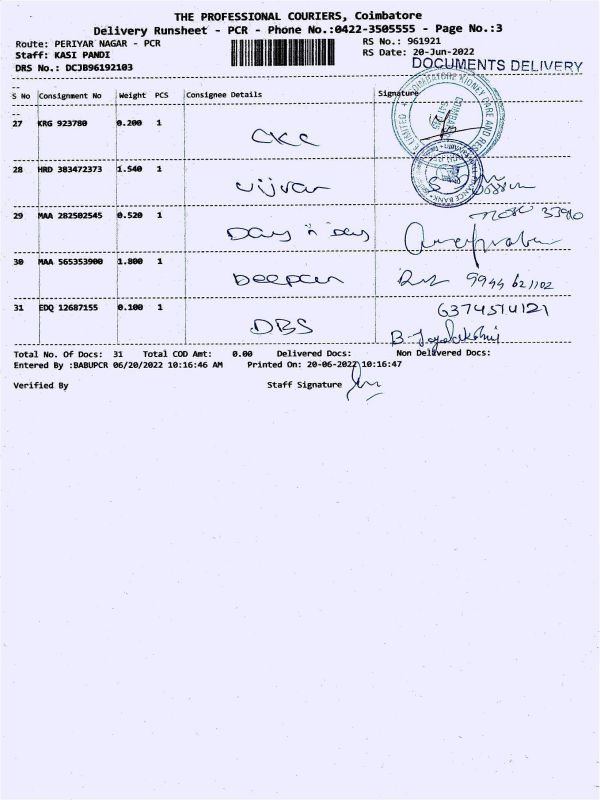 THE PROFESSIONAL COURIERS, Coimbatore
Delivery Runsheet - PCR - Phone No.:0422-3505555 - Page No.:3
Route: PERIYAR NAGAR - PCR RS No.: 961921
Staff: KASI PANDI RS Date: 20-Jun-2022
DRS No.: DCJB96192103 DOCUMENTS DELIVERY
S No Consignment No Weight PCS Consignee Details Signature
27 KRG 923780 0.200 1
CKC
28 HRD 383472373 1.540 1
29 MAA 282502545 0.520 1
Day n Day
30 MAA 565353900 1.800 1
Deepan 9944 621102
31 EDQ 12687155 0.100 1 6374514121
DBS B. Jayalakshmi
Total No. Of Docs: 31 Total COD Amt: 0.00 Delivered Docs: Non Delivered Docs:
Entered By :BABUPCR 06/20/2022 10:16:46 AM Printed On: 20-06-2022 10:16:47
Verified By Staff Signature